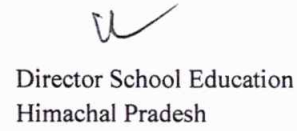 Director School Education
Himachal Pradesh